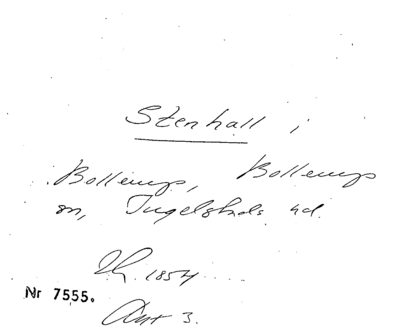 Stenhall i
Bollerup, Bollerups
sn, Ingelstads hd.
Th. 1854
Nr 7555.
Ant 3.